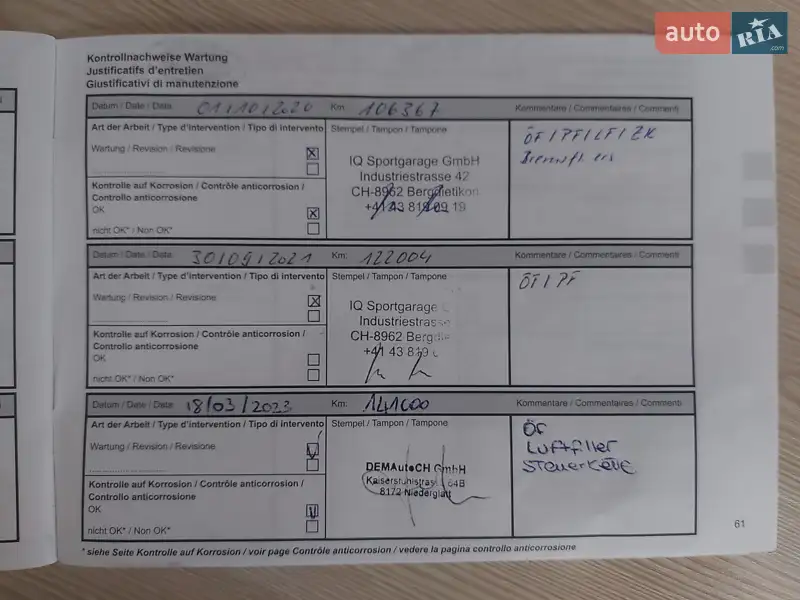 auto RIA .com
Kontrollnachweise Wartung
Justificatifs d'entretien
Giustificativi di manutenzione
Datum / Date / Data: 01/10/2020 Km: 106367 Kommentare / Commentaires / Commenti
Art der Arbeit / Type d'intervention / Tipo di intervento Stempel / Tampon / Tampone
ÖF/PF/LF/ZK
Wartung / Revision / Revisione
IQ Sportgarage GmbH
Industriestrasse 42
CH-8962 Bergdietikon
+41 43 819 09 19
Kontrolle auf Korrosion / Contrôle anticorrosion /
Controllo anticorrosione
OK
nicht OK* / Non OK*
Datum / Date / Data: 30/09/2021 Km: 122004 Kommentare / Commentaires / Commenti
Art der Arbeit / Type d'intervention / Tipo di intervento Stempel / Tampon / Tampone
ÖF/PF
Wartung / Revision / Revisione
IQ Sportgarage
Industriestrass
CH-8962 Bergdie
+41 43 819
Kontrolle auf Korrosion / Contrôle anticorrosion /
Controllo anticorrosione
OK
nicht OK* / Non OK*
Datum / Date / Data: 18/03/2023 Km: 141000 Kommentare / Commentaires / Commenti
Art der Arbeit / Type d'intervention / Tipo di intervento Stempel / Tampon / Tampone
ÖF
Luftfilter
Steuerkette
Wartung / Revision / Revisione
DEMAutoCH GmbH
Kaiserstuhlstrasse 54B
8172 Niederglatt
Kontrolle auf Korrosion / Contrôle anticorrosion /
Controllo anticorrosione
OK
nicht OK* / Non OK*
* siehe Seite Kontrolle auf Korrosion / voir page Contrôle anticorrosion / vedere la pagina controllo anticorrosione
61